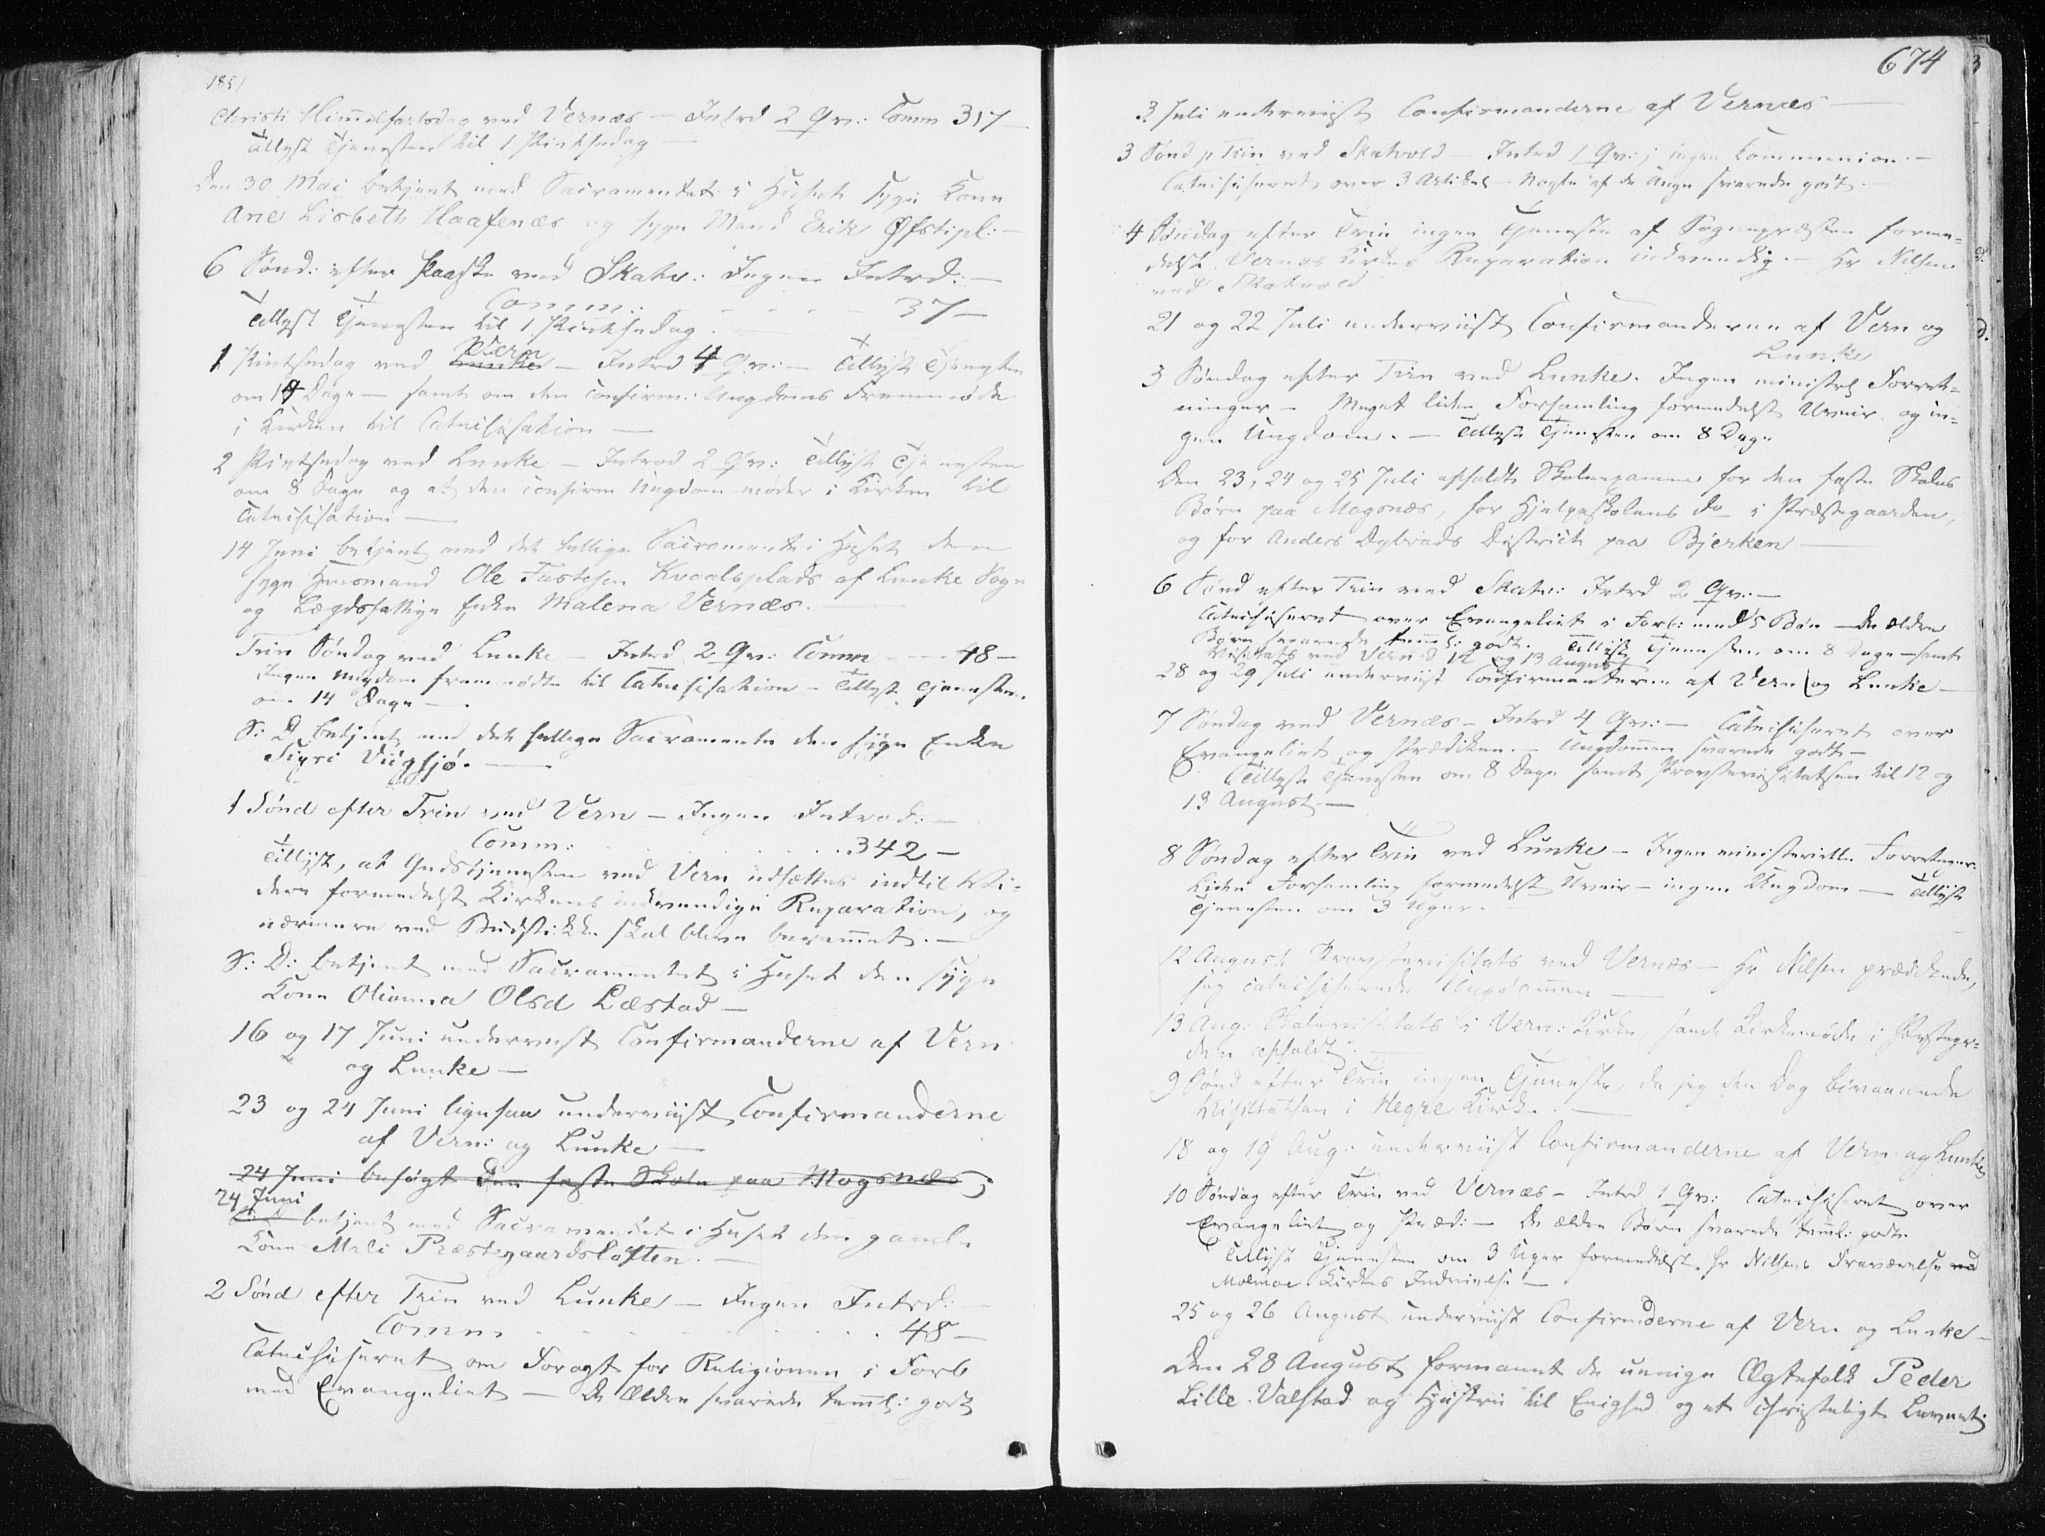 1851
Christi Himmelfartsdag ved Vernæs — Introd 2 Qv: Comm 317
Tillyst Tjenesten til 1 Pintsedag —
Den 30 Mai betjent med Sacramentet i Huset syge Kone
Ane Lisbeth Haafenæs og syge Mand Erik Øfstipl: —
6 Sønd: efter Paaske ved Skatv: Ingen Introd: —
Comm: 37 —
Tillyst Tjenesten til 1 Pintsedag. —
1 Pintsedag ved Vern — Introd 4 Qv: — Tillyst Tjenesten
om 14 Dage — samt om den confirm: Ungdoms Fremmøde
i Kirken til Catechisation —
2 Pintsedag ved Lunke — Introd 2 Qv: Tillyst Tjenesten
om 8 Dage og at den confirm Ungdom møder i Kirken til
Catechisation —
14 Juni betjent med det hellige Sacramente i Huset den
syge Huusmand Ole Fastesen Kvaalsplads af Lunke Sogn
og Lægdsfattige Enke Malena Vernæs. —
Trin Søndag ved Lunke — Introd 2 Qv: Comm 48 —
Ingen Ungdom fremmødte til Catechisation — Tillyst Tjenesten
om 14 Dage —
S: D betjent med det hellige Sacramente den syge Enke
Sigri Viigsjø. —
1 Sønd efter Trin ved Vern — Ingen Introd: —
Comm: 342 —
Tillyst, at Gudstjenesten ved Vern udsættes indtil Vi-
dere formedelst Kirkens indvendige Reparation, og
nærmere ved Budstikke skal blive berammet. —
S: D: betjent med Sacramentet i Huset den syge
Kone Olianna Olsd Læstad —
16 og 17 Juni underviist Confirmanderne af Vern
og Lunke —
23 og 24 Juni ligesaa underviist Confirmanderne
af Vern: og Lunke —
24 Juni besøgt den faste Skole paa Mogsnæs;
24 Juni
betjent med Sacramentet i Huset den gamle
Kone Mali Præstegaardsloften. —
2 Sønd efter Trin ved Lunke — Ingen Introd: —
Comm 48 —
Catechiseret om Foragt for Religionen i Forb
med Evangeliet — De Ældre svarede temml: godt
674
3 Juli underviist Confirmanderne af Vernæs —
3 Sønd p Trin ved Skatvold — Introd 1 Qv:; ingen Communion. —
Catechiseret over 3 Artikel — Nogle af de Unge svarede godt. —
4 Søndag efter Trin ingen Tjeneste af Sognepræsten forme-
delst Vernæs Kirkes Reparation indvendig. — Hr Nilsen
ved Skatvold
21 og 22 Juli underviist Confirmanderne af Vern og
Lunke
3 Søndag efter Trin ved Lunke. Ingen ministrl Forret-
ninger — Meget liden Forsamling formedelst Uveir og in-
gen Ungdom. — Tillyst Tjenesten om 8 Dage
Den 23, 24 og 25 Juli afholdt Skoleexamen for den faste Skoles
Børn paa Mogsnæs, for Hjelpeskolens do i Præstegaarden,
og for Anders Dybvads District paa Bjerken —
6 Sønd efter Trin ved Skatv: Introd 2 Qv: —
Catechiseret over Evangeliet i Forb: med 5 Bøn — De ældre
Børn svarede temml: godt. Tillyst Tjenesten om 8 Dage — samt
Visitats ved Vern d 12 og 13 August
28 og 29 Juli underviist Confirmanterne af Vern og Lunke —
7 Søndag ved Vernæs — Introd 4 Qv: — Catechiseret over
Evangeliet og Prædiken. — Ungdommen svarede godt —
Tillyst Tjenesten om 8 Dage samt Provstevisitatsen til 12 og
13 August. —
8 Søndag efter Trin ved Lunke — Ingen ministerielle Forretninger.
Liden Forsamling formedelst Uveir — ingen Ungdom — Tillyst
Tjenesten om 3 Uger.
12 August Provstevisitats ved Vernæs — Hr Nilsen prædikede,
jeg catechiserede Ungdommen —
13 Aug: Skolevisitats i Vern: Kirke samt Kirkemøde i Præstegr-
den afholdt. —
9 Sønd efter Trin ingen Tjeneste, da jeg den Dag bivaanede
Visitatsen i Hegre Kirke. —
18 og 19 Aug: underviist Confirmanderne af Vern og Lunke
10 Søndag efter Trin ved Vernæs — Introd 1 Qv: Catechiseret over
Evangeliet og Præd: — De ældre Børn svarede temml: godt.
Tillyst Tjenesten om 3 Uger formedelst Hr Nilsens Fraværelse ved
Molmoe Kirkes Indvielse —
25 og 26 August underviist Confirmderne af Vern og Lunke —
Den 28 August formanet de uenige Ægtefolk Peder
Lille-Valstad og Hustru til Enighed og et christeligt Levnet;